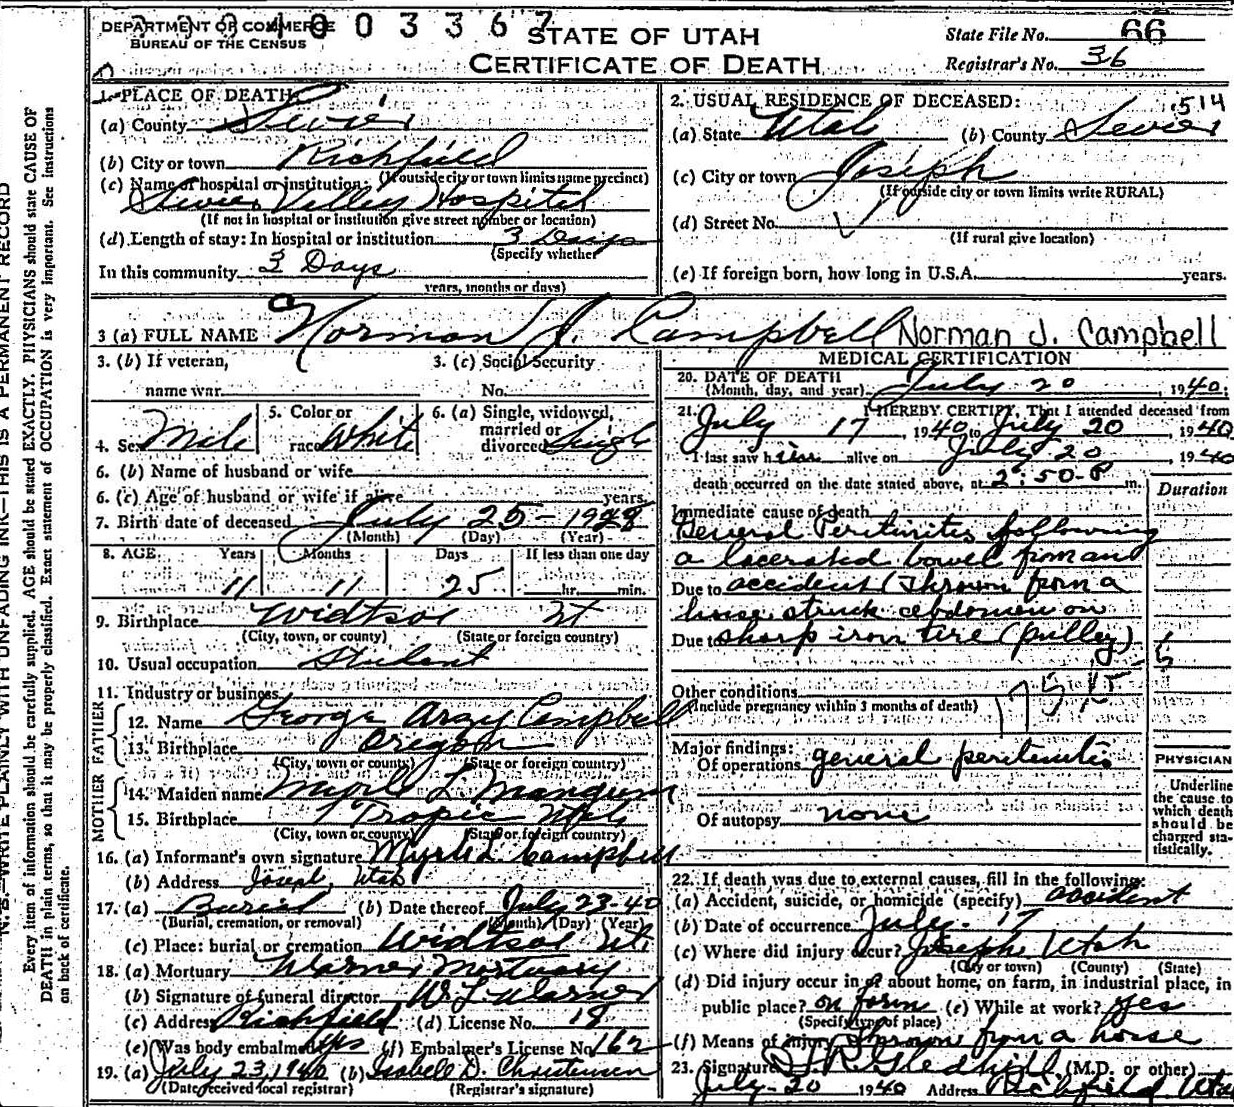 DEPARTMENT OF COMMERCE
BUREAU OF THE CENSUS
0 0 3 3 6 7
STATE OF UTAH
CERTIFICATE OF DEATH
State File No. 66
Registrar's No. 36
1. PLACE OF DEATH:
(a) County Sevier
(b) City or town Richfield
(If outside city or town limits name precinct)
(c) Name of hospital or institution:
Sevier Valley Hospital
(If not in hospital or institution give street number or location)
(d) Length of stay: In hospital or institution 3 Days
(Specify whether
In this community 3 Days
years, months or days)
2. USUAL RESIDENCE OF DECEASED: 514
(a) State Utah (b) County Sevier
(c) City or town Joseph
(If outside city or town limits write RURAL)
(d) Street No.
(If rural give location)
(e) If foreign born, how long in U.S.A. years.
3 (a) FULL NAME Norman J. Campbell Norman J. Campbell
3. (b) If veteran,
name war.
3. (c) Social Security
No.
4. Sex Male
5. Color or
race White
6. (a) Single, widowed,
married or
divorced Single
6. (b) Name of husband or wife
6. (c) Age of husband or wife if alive years.
7. Birth date of deceased July 25-1928
(Month) (Day) (Year)
8. AGE Years Months Days If less than one day
11 11 25 hr. min.
9. Birthplace Widtsoe Ut
(City, town, or county) (State or foreign country)
10. Usual occupation Student
11. Industry or business
FATHER
12. Name George Argy Campbell
13. Birthplace Oregon
(City, town or county) (State or foreign country)
MOTHER
14. Maiden name Myrle L. Mangum
15. Birthplace Tropic Utah
(City, town or county) (State or foreign country)
16. (a) Informant's own signature Myrle L. Campbell
(b) Address Joseph, Utah
17. (a) Burial (b) Date thereof July 23-40
(Burial, cremation, or removal) (Month) (Day) (Year)
(c) Place: burial or cremation Widtsoe Ut
18. (a) Mortuary Warner Mortuary
(b) Signature of funeral director W. L. Warner
(c) Address Richfield (d) License No. 18
(e) Was body embalmed yes (f) Embalmer's License No. 162
19. (a) July 23, 1940 (b) Isabell D. Christensen
(Date received local registrar) (Registrar's signature)
MEDICAL CERTIFICATION
20. DATE OF DEATH
(Month, day, and year) July 20, 1940
21. I HEREBY CERTIFY, That I attended deceased from
July 17 1940 to July 20, 1940
I last saw him alive on July 20, 1940
death occurred on the date stated above, at 2:50 P m.
Duration
Immediate cause of death
General Peritinites following
a lacerated bowel from an
Due to accident (Thrown from a
horse struck abdomen on
Due to sharp iron tire (pulley)
Other conditions
(Include pregnancy within 3 months of death)
Major findings:
Of operations general peritinitis
Of autopsy none
PHYSICIAN
Underline
the cause to
which death
should be
charged sta-
tistically.
22. If death was due to external causes, fill in the following:
(a) Accident, suicide, or homicide (specify) accident
(b) Date of occurrence July 17
(c) Where did injury occur? Joseph Utah
(City or town) (County) (State)
(d) Did injury occur in or about home, on farm, in industrial place, in
public place? on farm (e) While at work? yes
(Specify type of place)
(f) Means of injury Thrown from a horse
23. Signature Gledhill (M.D. or other)
July 20 1940 Address Richfield, Utah
N. B.—WRITE PLAINLY WITH UNFADING INK—THIS IS A PERMANENT RECORD
Every item of information should be carefully supplied. AGE should be stated EXACTLY. PHYSICIANS should state CAUSE OF
DEATH in plain terms, so that it may be properly classified. Exact statement of OCCUPATION is very important. See instructions
on back of certificate.